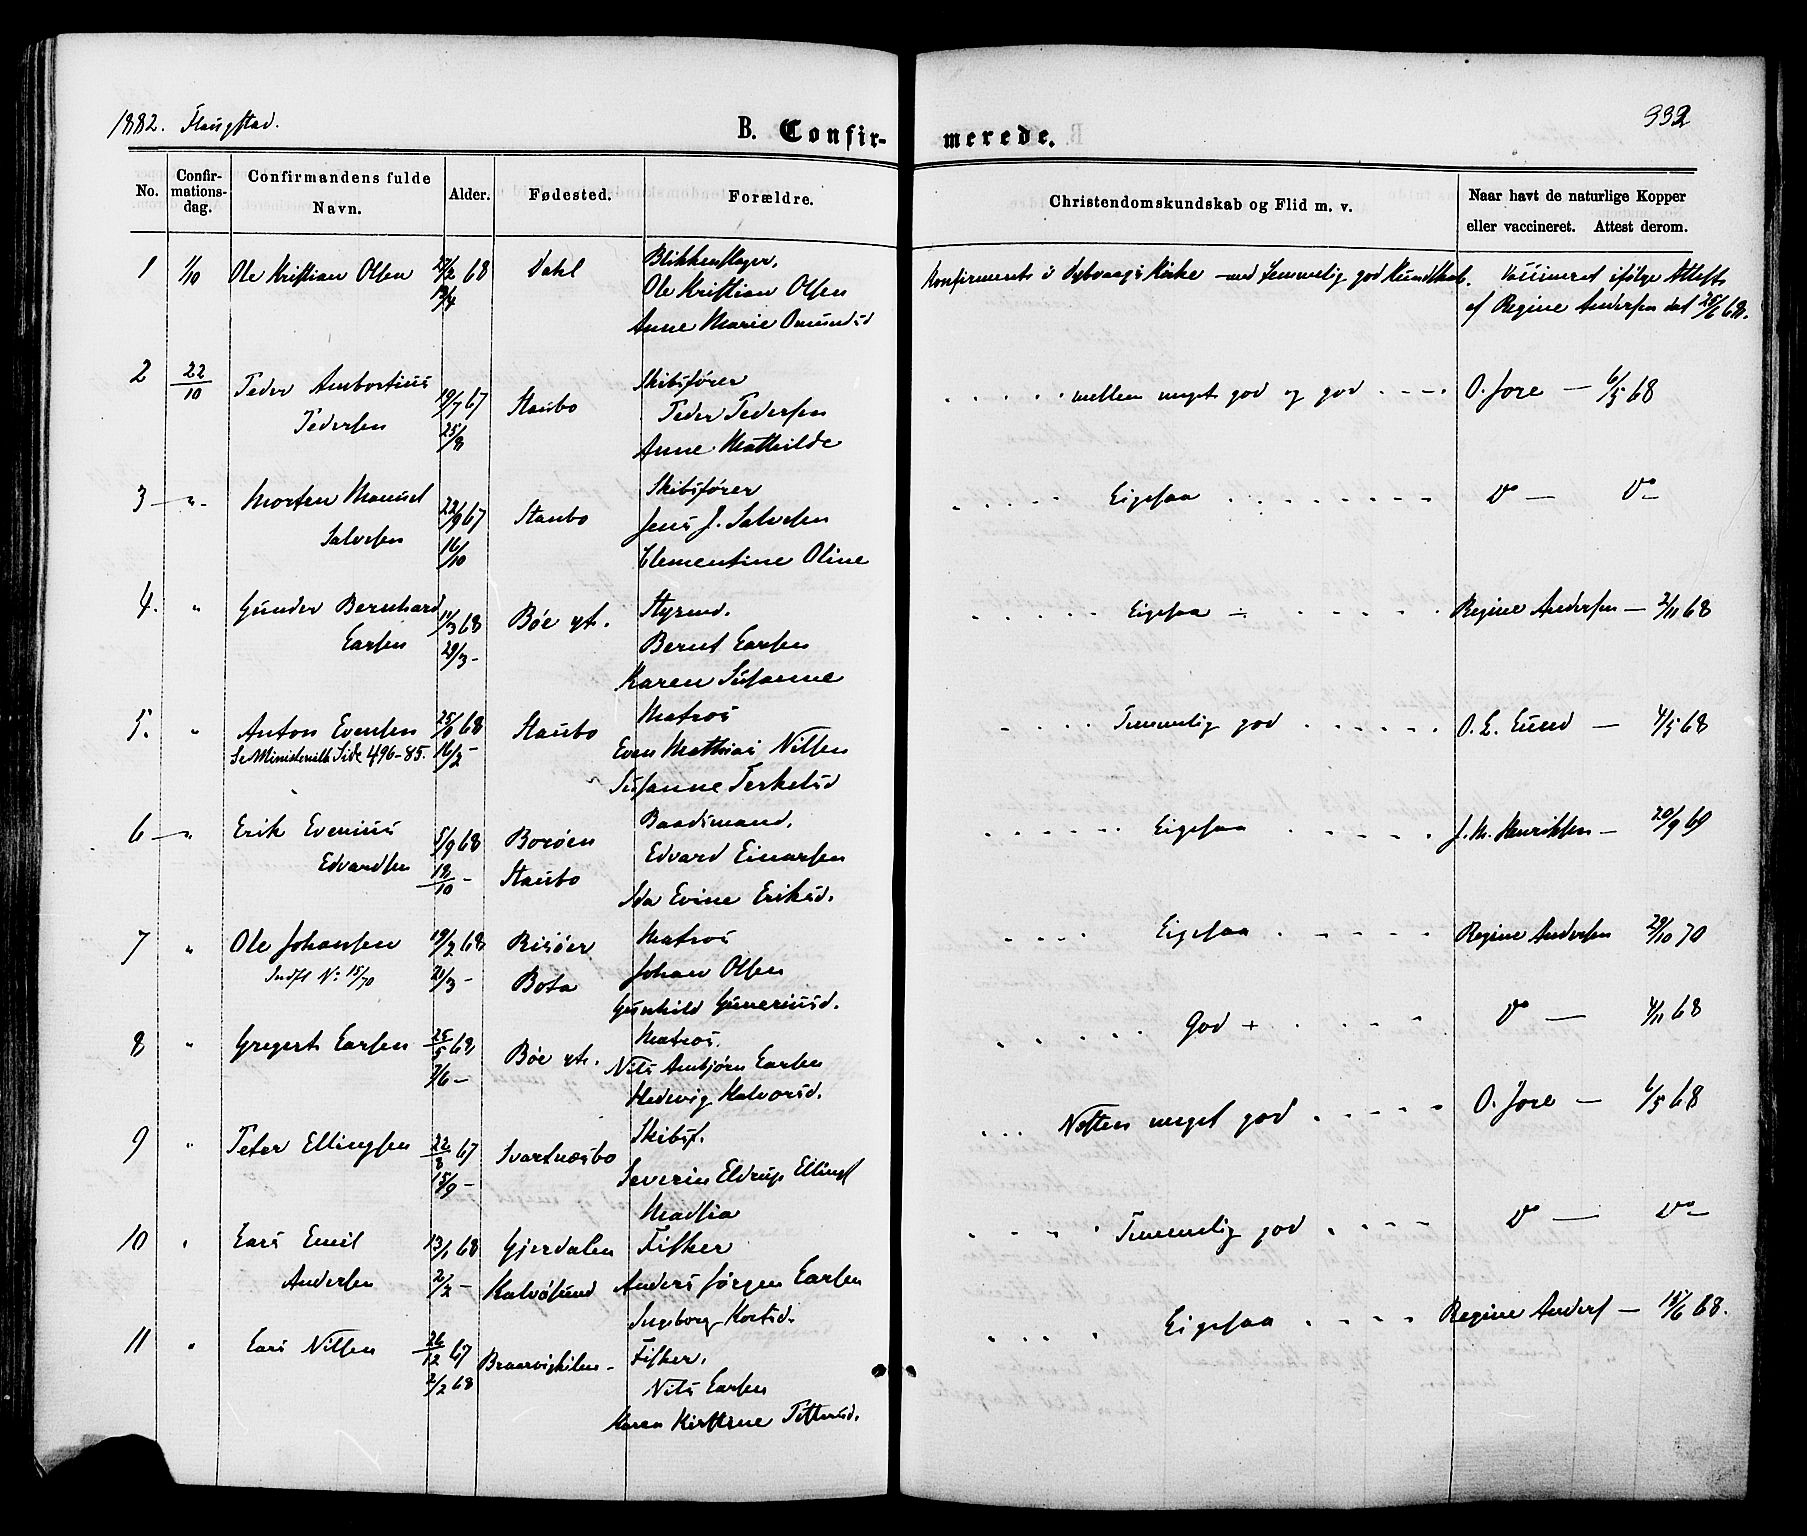 1882. Flangstad.
332
B. Confir-
merede.
No.
Confir-
mations-
dag.
Confirmandens fulde
Navn.
Alder.
Fødested.
Forældre.
Christendomskundskab og Flid m. v.
Naar havt de naturlige Kopper
eller vaccineret. Attest derom.
1 1/10 Ole Kristian Olsen 27/2 68 Dahl Blikkenslager,
19/4 Ole Kristian Olsen
Anne Marie Omundsd
Konfirmerets i Dybvaags Kirke med temmelig god Kundskab. Vaccineret ifølge Attest
af Regine Andersen dat 25/6 68.
2 22/10 Peder Ambortius 19/7 67 Staubo Skibsfører
Pedersen 25/8 Peder Pedersen
Anne Mathilde
mellem meget god og god O. Jore — 6/5 68
3 — " - Morten Manuel 22/9 67 Staubo Skibsfører
Salvesen 16/10 Jens J. Salvesen
Clementine Oline
Ligesaa Do — Do —
4. " Gunder Bernhard 11/3 68 Bøe yt. Styrmd.
Larsen 29/3 - Bernt Larsen
Karen Susanne
Ligesaa ÷ Regine Andersen — 2/11 68
5. " Anton Evensen 68 Staubo Matros
Se Ministerialb Side 496-85. 16/2 - Even Mathias Nilsen
Susanne Terkelsd
Temmelig god O. L. Lund — 4/5 68
6 — " Erik Evenius 5/9 68 Borøen Baadsmand,
Edvardsen 18/10 - Staubo Edvard Einarsen
Ida Evine Eriksd.
Ligesaa J. M. Henriksen — 20/9 69
7 " Ole Johansen 19/2 68 Risøer Matros
Indfl No 15/70 /3 - Bota Johan Olsen
Gunhild Guneriusd.
Ligesaa Regine Andersen 29/10 70
8 " Gregert Larsen 25/5 68 Bøe yt. Matros,
7/6 — Nils Ambjørn Larsen
Hedevig Halvorsd.
God + Do — 4/11 68
9 " Peter Ellingsen 22/8 67 Svartnæsbo Skibsf.
15/9 — Severin Eldrup Ellings
Madsia
Næsten meget god O. Jore — 6/5 68
10 " Lars Emil 13/1 68 Gjerdalen Fisker
Andersen 2/2 — Kalvøsund Anders Jørgen Larsen
Ingeborg Kortsd.
Temmelig god Do — Do —
11 " Lars Nilsen 26/12 67 Braarvigkilen - Fisker,
2/2 68 Nils Larsen
Karen Kirstine
Ligesaa Regine Anders — 15/6 68.